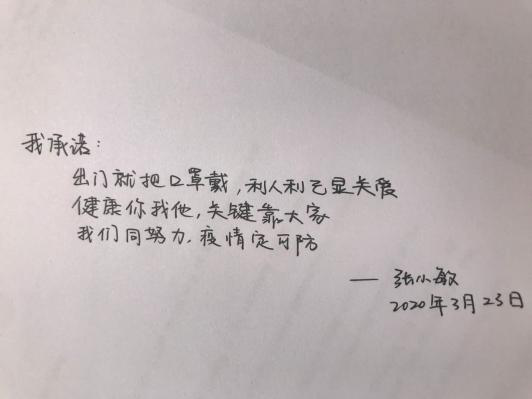 我承诺：
出门就把口罩戴，利人利己显关爱
健康你我他，关键靠大家
我们同努力，疫情定可防
——张小敏
2020年3月23日